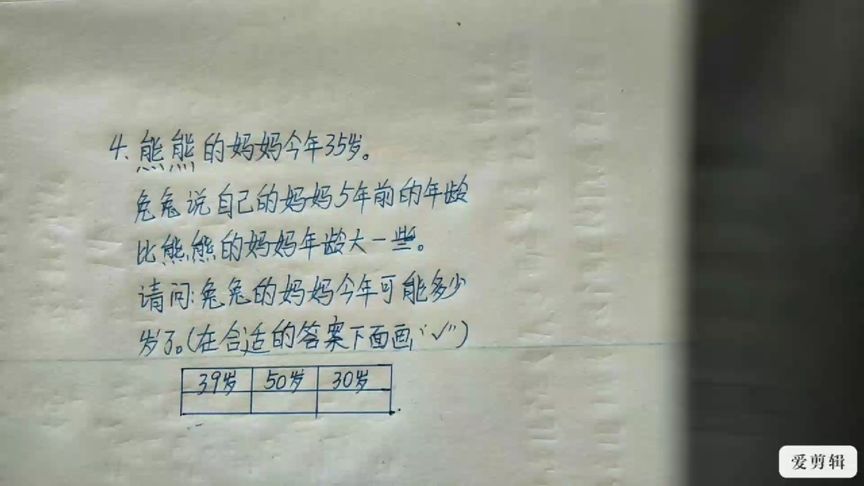 4、熊熊的妈妈今年35岁。
兔兔说自己的妈妈5年前的年龄
比熊熊的妈妈年龄大一些。
请问:兔兔的妈妈今年可能多少
岁了。(在合适的答案下面画“√”)
39岁 50岁 30岁
爱剪辑